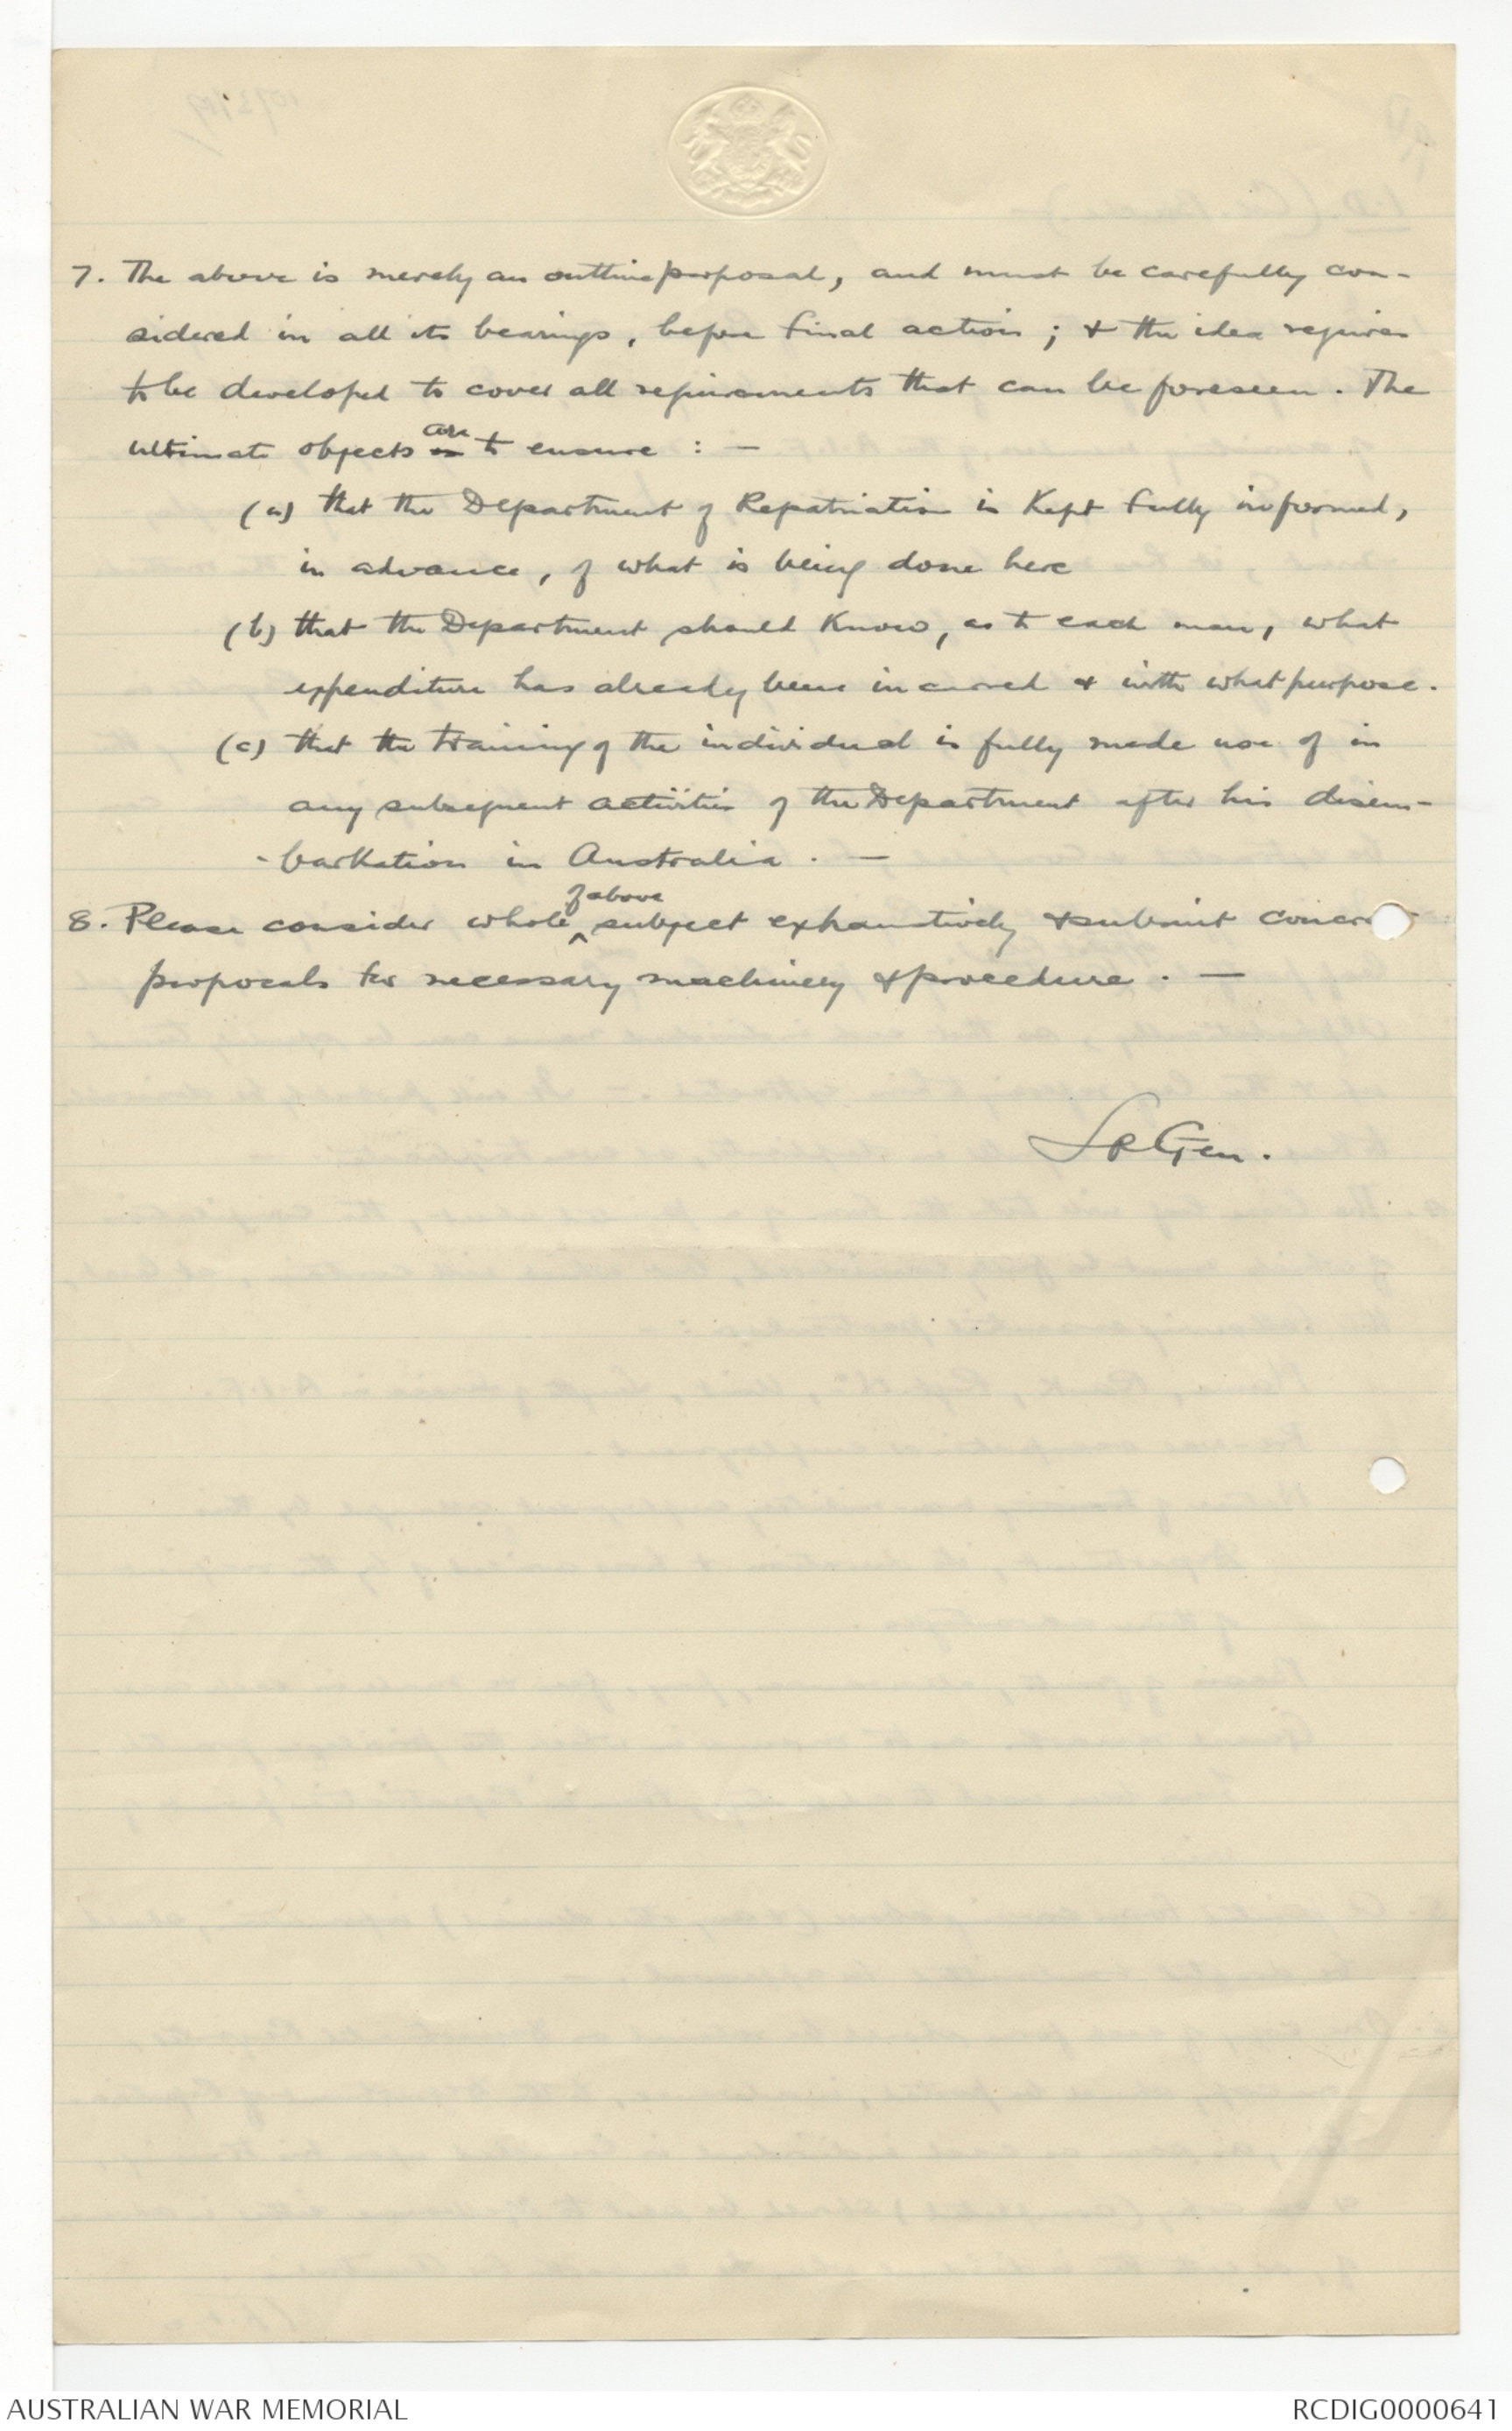 7. The above is merely an outline proposal, and must be carefully con-
sidered in all its bearings, before final action; & the idea requires
to be developed to cover all requirements that can be foreseen. The
ultimate objects are to ensure : —
(a) that the Department of Repatriation is kept fully informed,
in advance, of what is being done here
(b) that the Department should know, as to each man, what
expenditure has already been incurred & with what purpose.
(c) that the training of the individual is fully made use of in
any subsequent activities of the Department after his disem-
-barkation in Australia. —
8. Please consider whole of above subject exhaustively & submit concrete
proposals for necessary machinery & procedure. —
Lt Gen.
AUSTRALIAN WAR MEMORIAL
RCDIG0000641